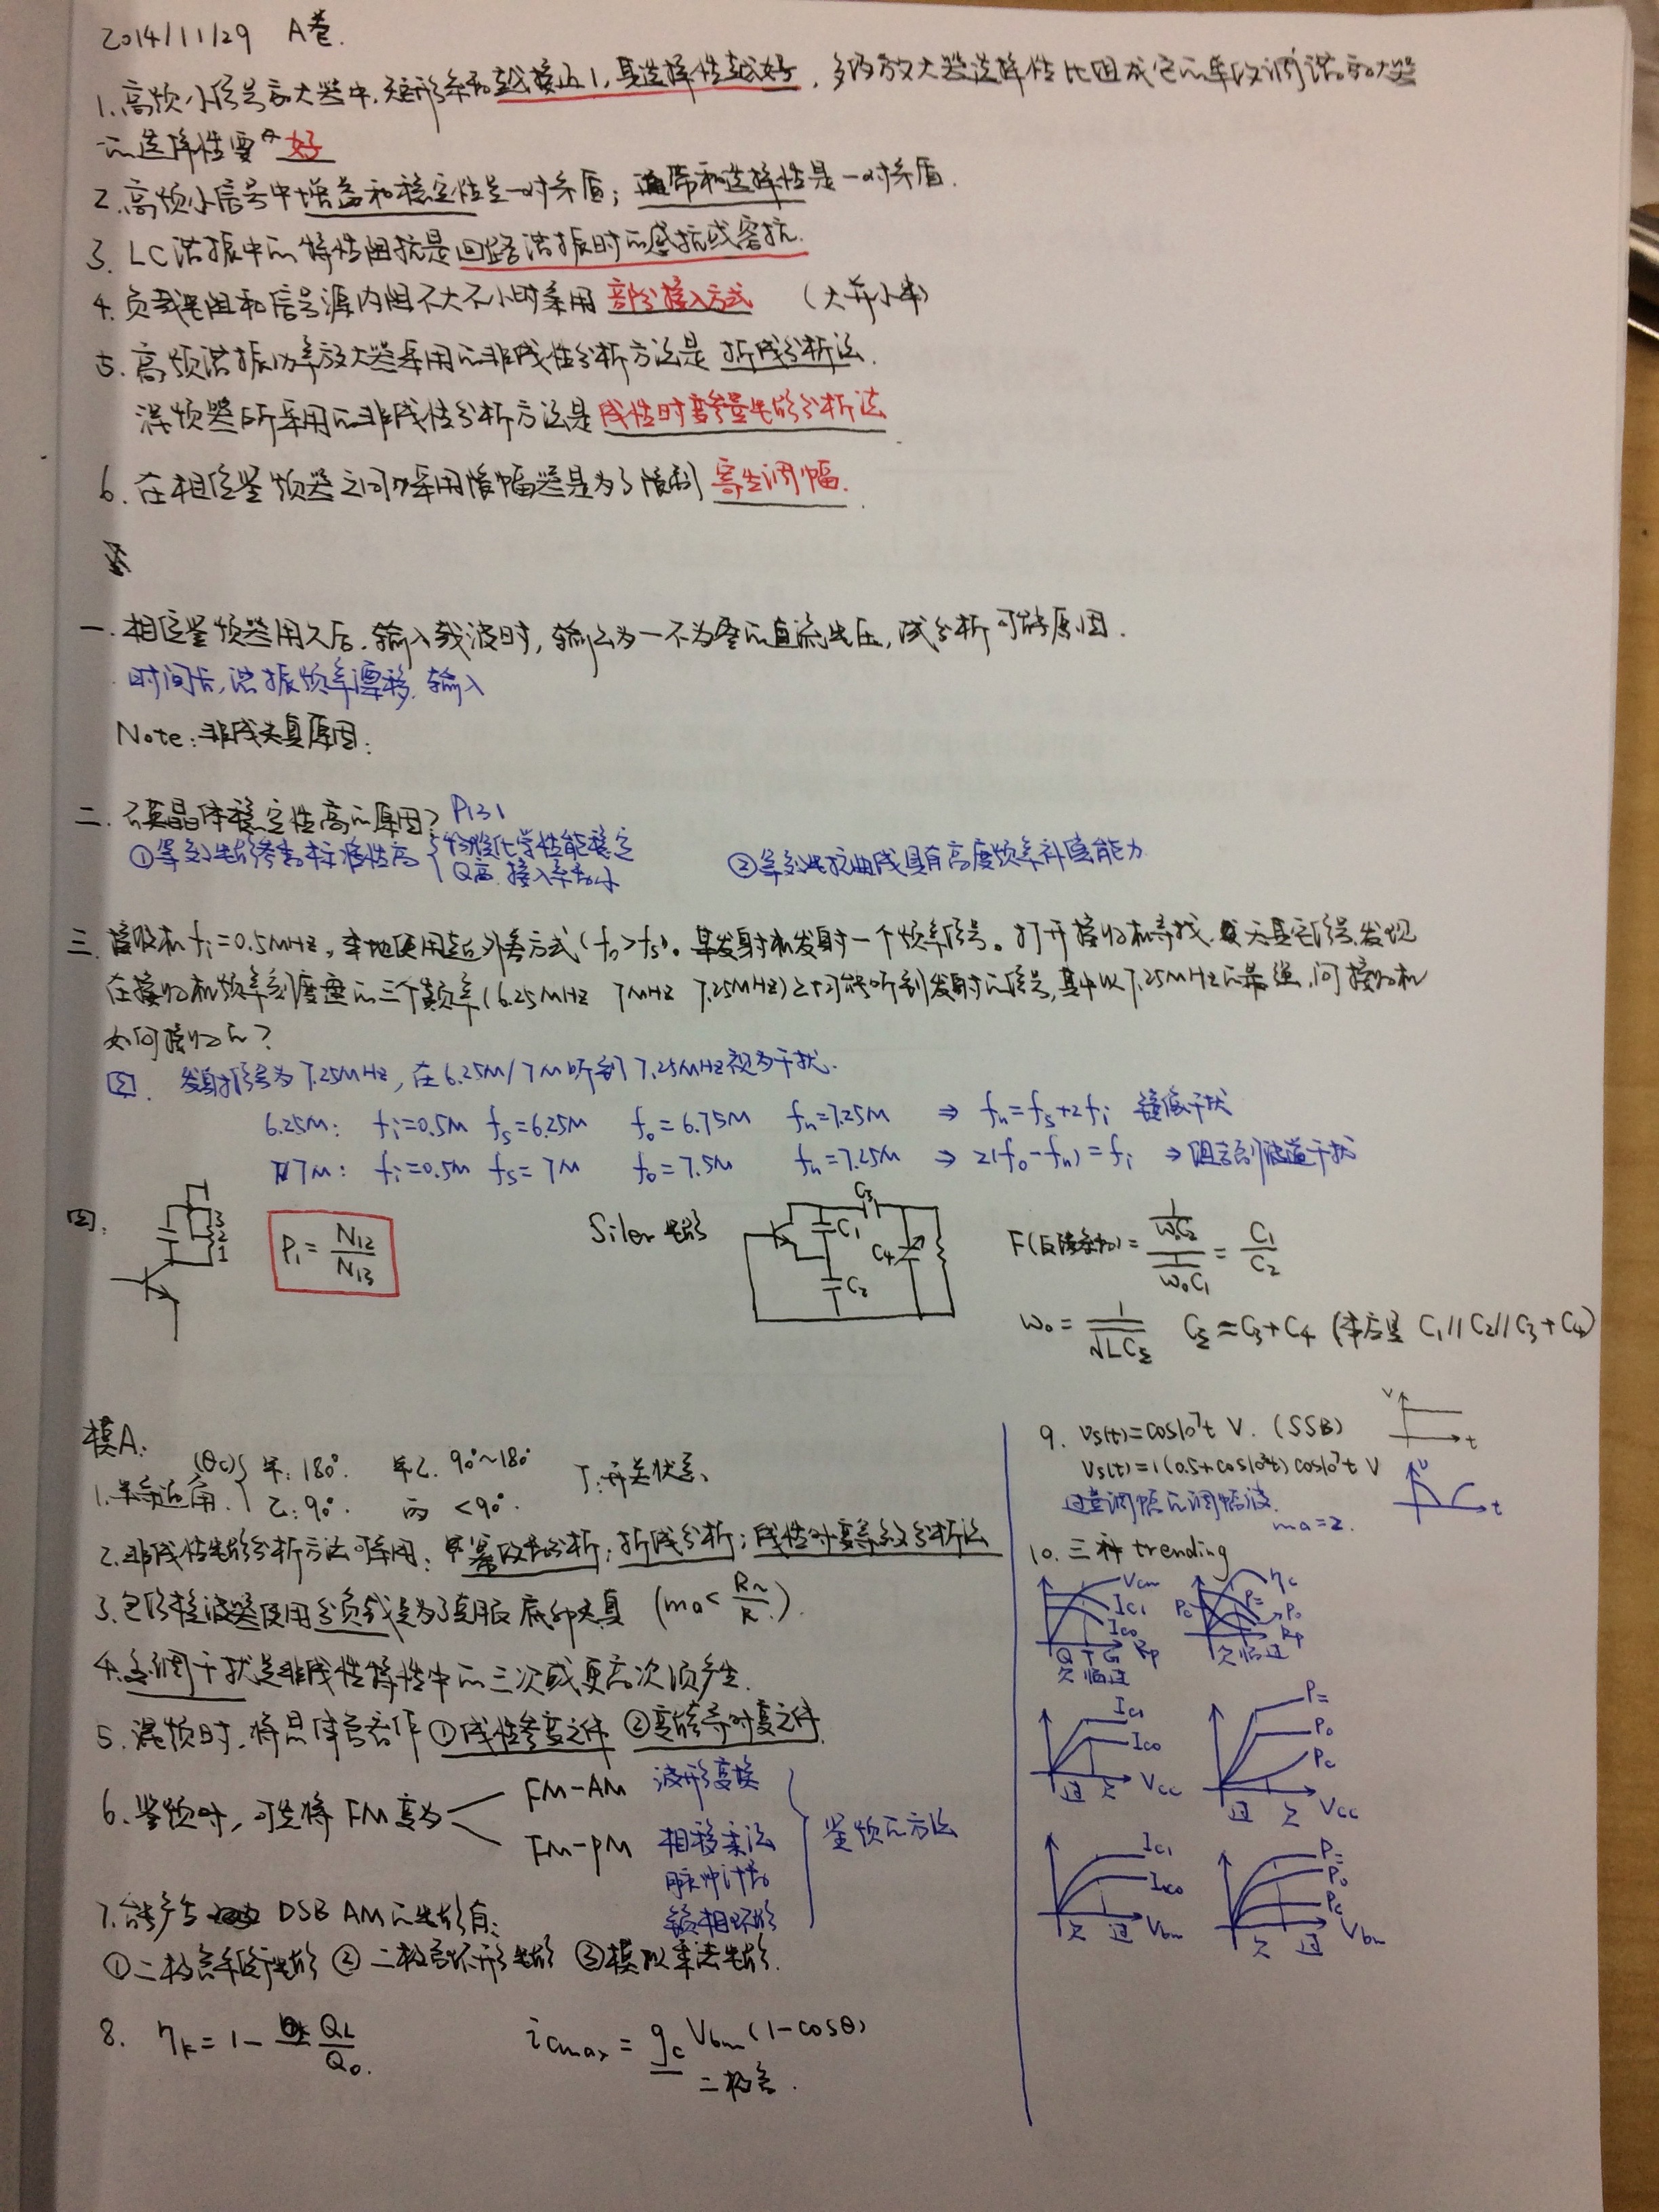 2014/11/29 A卷.
1. 高频小信号放大器中,矩形系数越接近1,其选择性越好,多级放大器选择性比组成它的单级调谐放大器
的选择性要 好
2. 高频小信号中增益和稳定性是一对矛盾;通带和选择性是一对矛盾.
3. LC谐振中的特性阻抗是回路谐振时的感抗或容抗.
4. 负载电阻和信号源内阻不大不小时采用 部分接入方式 (大并小串)
5. 高频谐振功率放大器采用的非线性分析方法是 折线分析法.
混频器所采用的非线性分析方法是线性时变参量电路分析法
6. 在相位鉴频器之间采用限幅器是为了限制 寄生调幅.
一. 相位鉴频器用久后,输入载波时,输出为一不为零的直流电压,试分析可能原因.
时间长,谐振频率漂移,输入
Note:非线失真原因:
二. 石英晶体稳定性高的原因? P131
①等效电路参数标准性高 { 物理化学性能稳定
Q高,接入系数小
②等效电抗曲线具有高度频率补偿能力
三. 接收机fi=0.5MHz,本地使用超外差方式(fo>fs)。某发射机发射一个频率信号。打开接收机寻找,发现
在接收机频率刻度盘的三个频率(6.25MHz 7MHz 7.25MHz)上均能听到发射的信号,其中以7.25MHz的最强,问接收机
如何接收的?
发射信号为7.25MHz,在6.25M/7M听到7.25MHz视为干扰.
6.25M: fi=0.5M fs=6.25M fo=6.75M fn=7.25M ⇒ fn=fs+2fi 镜像干扰
7M: fi=0.5M fs=7M fo=7.5M fn=7.25M ⇒ 2(fo-fn)=fi ⇒ 组合副波道干扰
四. 3
2
1
P₁ = N₁₂/N₁₃
Siler 电路 C3 C1 C4 C2
F(反馈系数)= (1/ω₀C₂)/(1/ω₀C₁) = C₁/C₂
ω₀ = 1/√(LC_Σ) C_Σ ≈ C₃+C₄ (本应是 C₁//C₂//C₃+C₄)
模A.
1. 半导通角 (θc) { 甲: 180°. 甲乙. 90°~180° 丁:开关状态、
乙: 90°. 丙 <90°.
2. 非线性电路分析方法可采用: 幂级数分析;折线分析;线性时变系数分析法
3. 包络检波器使用分负载是为了克服 底部失真 (ma< R~/R).
4. 互调干扰是非线性特性中的三次或更高次项产生.
5. 混频时,将晶体管看作 ①线性参变元件 ②变跨导时变元件.
6. 鉴频时,可先将FM变为 FM-AM 波形变换
FM-PM 相移乘法
脉冲计数
锁相环路
鉴频的方法
7. 能产生 DSB AM的电路有:
①二极管平衡电路 ②二极管环形电路 ③模拟乘法电路.
8. ηk = 1- QL/Q0. icmax = gc Vbm(1-cosθ)
二极管.
9. vs(t)=cos10⁷t V. (SSB) V t
vs(t)=1(0.5+cos10³t)cos10⁷t V U t
过量调幅的调幅波. ma=2.
10. 三种 trending
Vcm Ic1 Ico Rp
Q T G
欠临过
ηc P= Po Pc Rp
欠临过
Ic1 Ico Vcc
过 欠
P= Po Pc Vcc
过 欠
Ic1 Ico Vbm
欠 过
P= Po Pc Vbm
欠 过